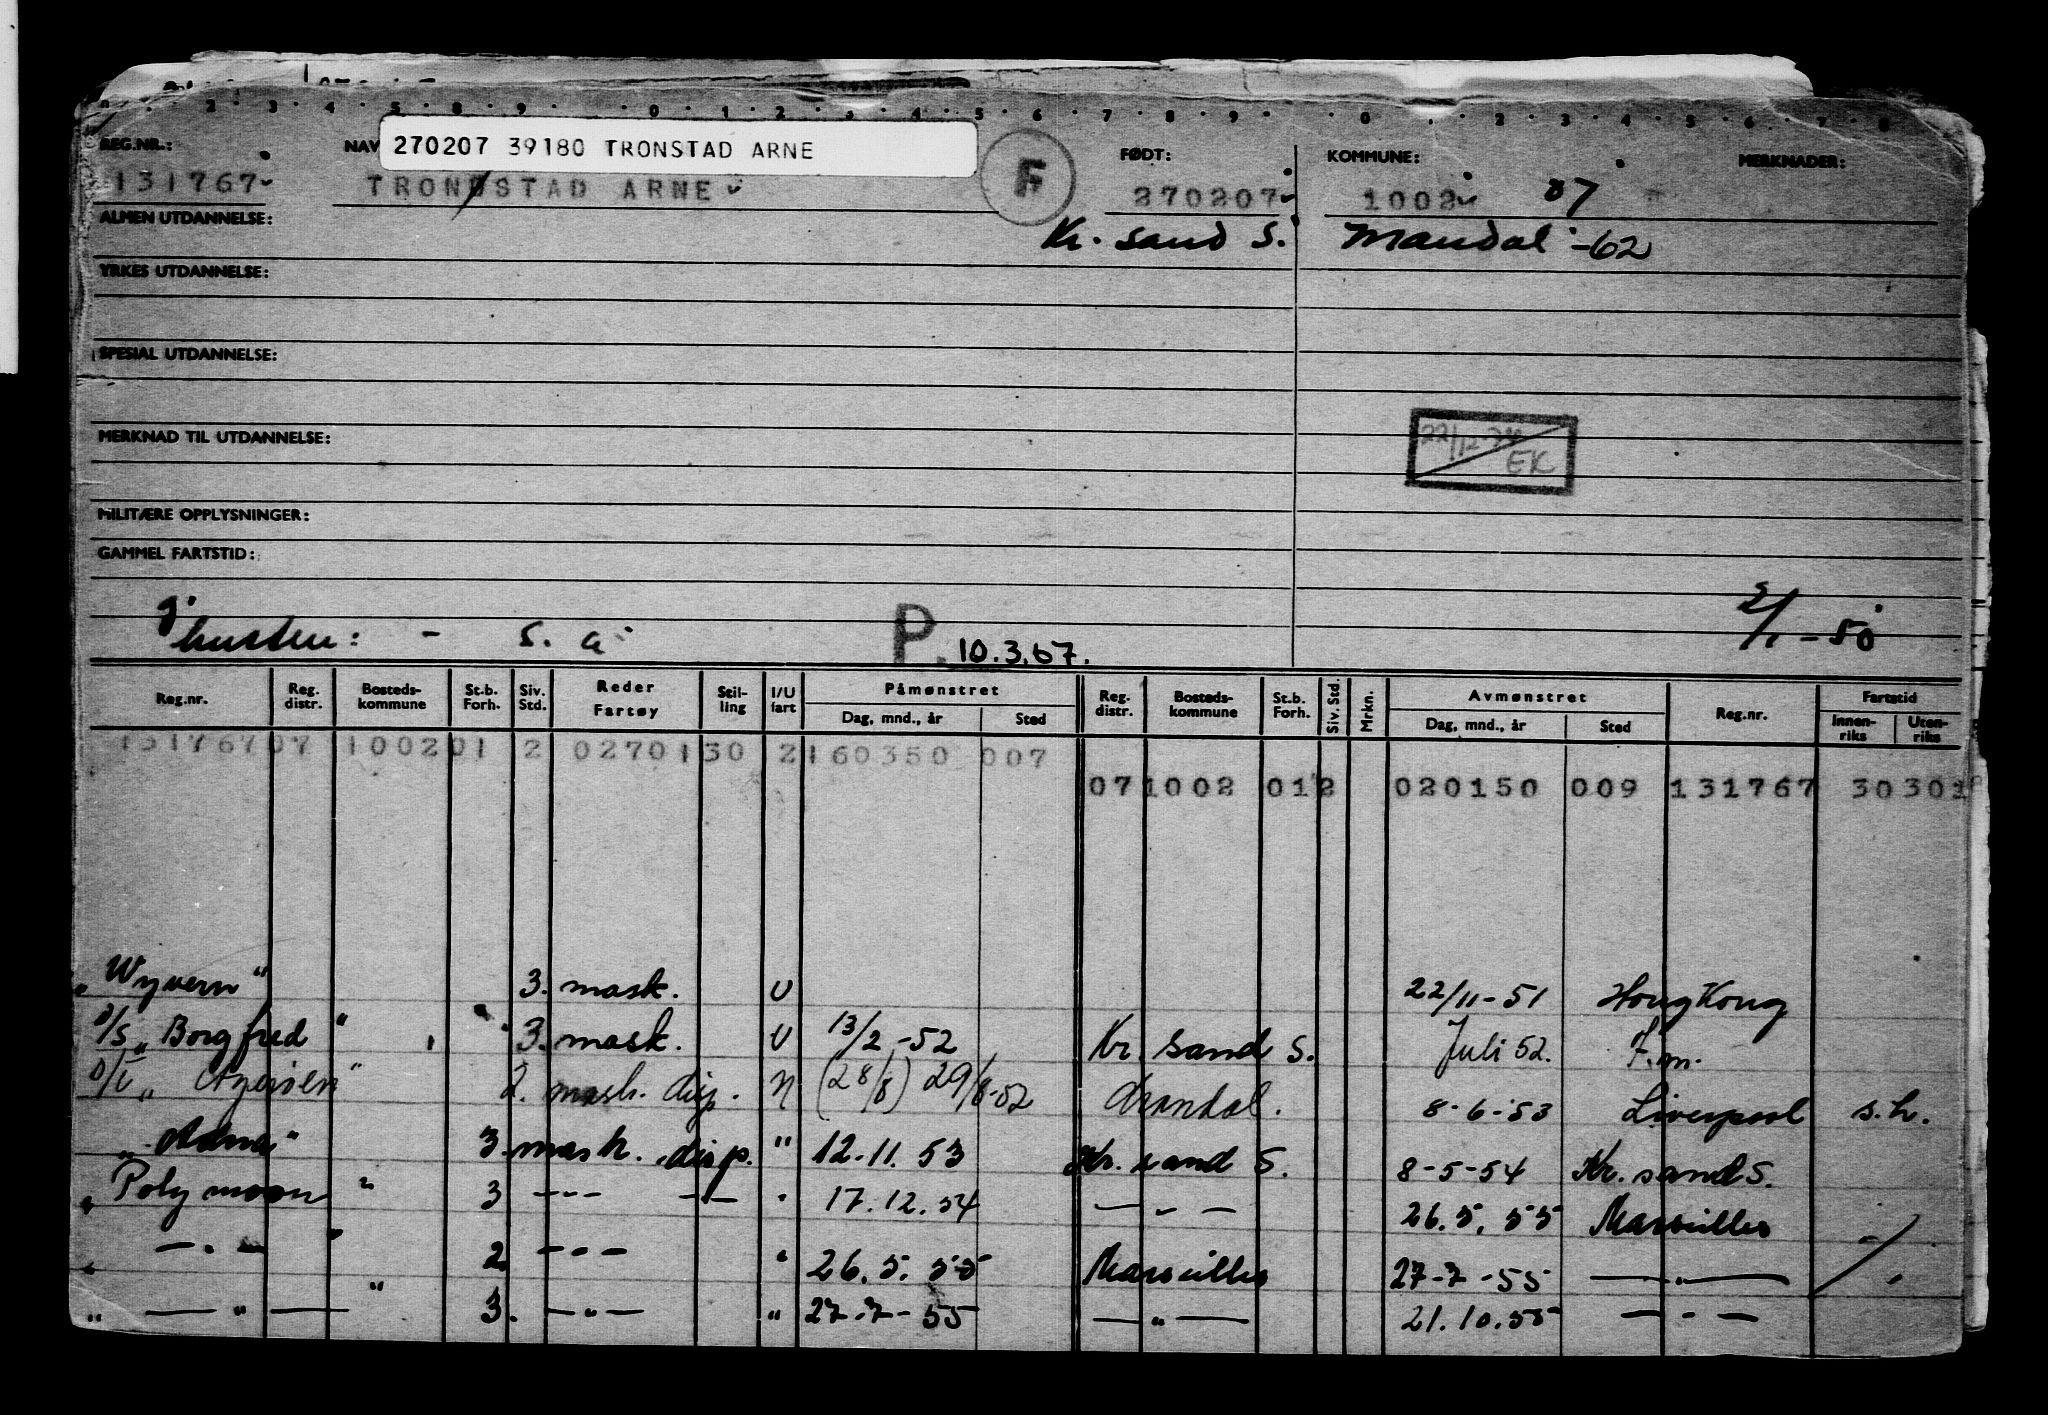 REG.NR.: NAV 270207 39180 TRONSTAD ARNE F FØDT: KOMMUNE: MERKNADER:
131767 TRONDSTAD ARNE 270207 1002 07
ALMEN UTDANNELSE: Kr. sand S. Mandal -62
YRKES UTDANNELSE:
SPESIAL UTDANNELSE:
MERKNAD TIL UTDANNELSE: 22/12 EK
MILITÆRE OPPLYSNINGER:
GAMMEL FARTSTID:
hustru: - s. a P. 10.3.67. 2/1 - 50
Reg.nr. Reg. distr. Bosteds-kommune St.b. Forh. Siv. Std. Reder Fartøy Stil-ling I/U fart Påmønstret Reg. distr. Bosteds-kommune St.b. Forh. Siv. Std. Mrkn. Avmønstret Reg.nr. Fartstid
Dag, mnd., år Sted Dag, mnd., år Sted Innen-riks Uten-riks
131767 07 1002 01 2 02701 30 2 160350 007
07 1002 01 2 020150 009 131767 30 301
"Wyvern" 3. mask. U 22/11-51 Hong Kong
D/S "Borgfred" 3. mask. U 13/2-52 Kr. sand S. Juli 52. F.m.
2. mask. disp. (28/8) 29/8-52 Arendal. 8-6-53 Liverpool s.h.
3. mask. disp. " 12.11.53 Kr. sand S. 8-5-54 Kr. sand S.
"Polymoon" 3 --- — " 17.12.54 — " — 26.5.55 Marseilles
" — " — " 2 --- " 26.5.55 Marseilles 27-7-55 — " —
" — " — " 3. — " — " 27-7-55 — " — 21.10.55 — " —